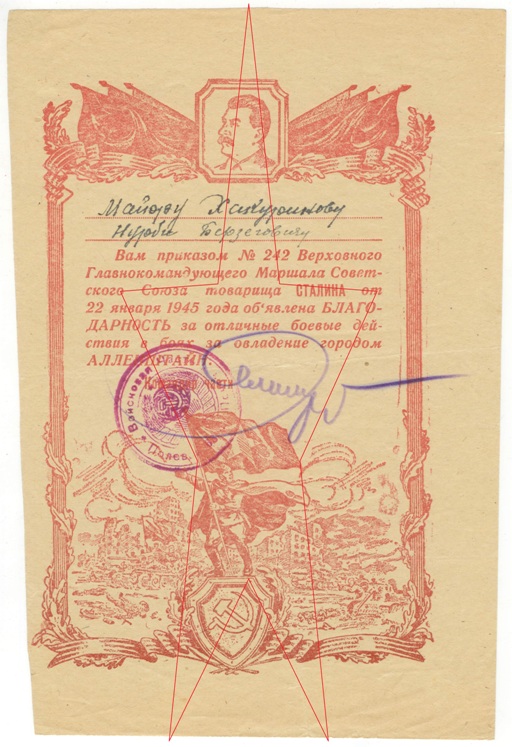 Майору Хакуринову
Нурби Бефзеговичу
Вам приказом № 242 Верховного
Главнокомандующего Маршала Совет-
ского Союза товарища СТАЛИНА от
22 января 1945 года об'явлена БЛАГО-
ДАРНОСТЬ за отличные боевые дей-
ствия в боях за овладение городом
АЛЛЕНШТАЙН.
Командир части
Войсковая
Полев.